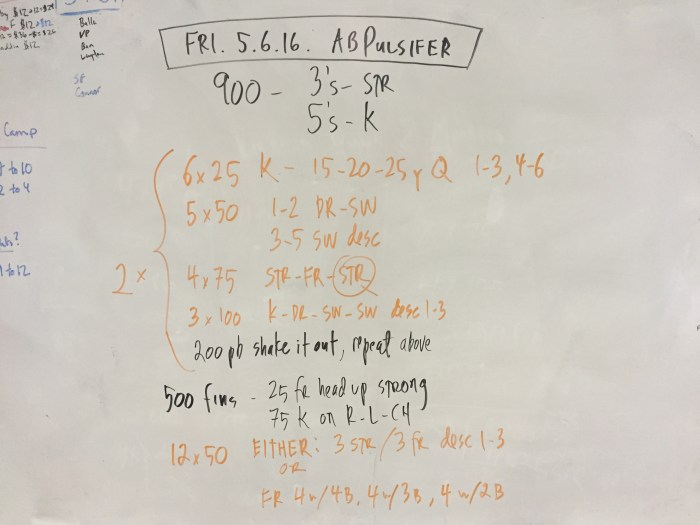 FRI. 5.6.16. AB PULSIFER
900 - 3's - STR
5's - K
6x25 K - 15-20-25y Q 1-3, 4-6
5x50 1-2 DR-SW
3-5 SW desc
2x
4x75 STR-FR-STR
3x100 K-DR-SW-SW desc 1-3
200 pb shake it out, repeat above
500 fins - 25 fr head up strong
75 K on R-L-CH
12x50 EITHER: 3 STR/3 FR desc 1-3
OR
FR 4w/4B, 4w/3B, 4w/2B
Bella
VP
Ben
SR
Connor
Camp
to 10
2 to 4
1 to 12